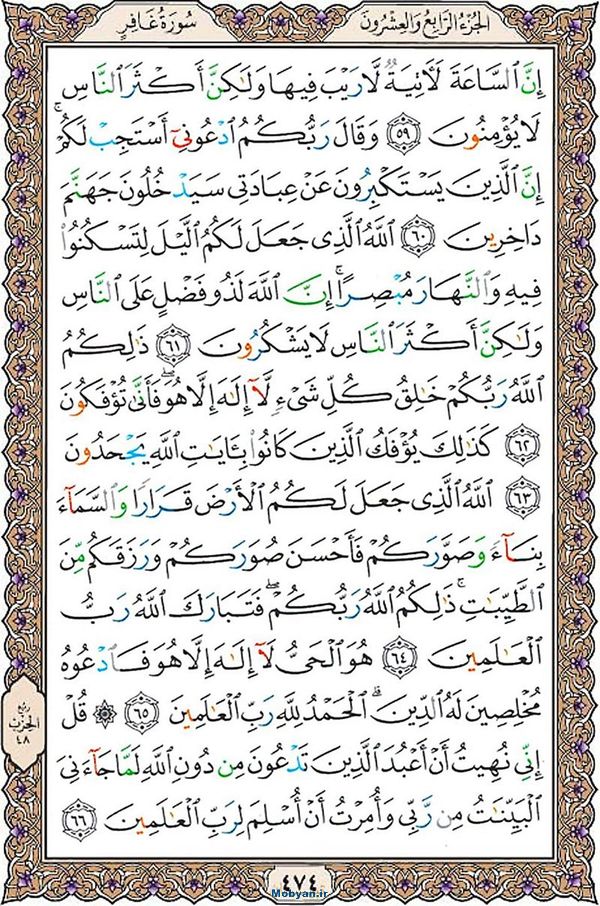 الجُزْءُ الرَّابِعُ وَالعِشْرُونَ
سُورَةُ غَافِرٍ
إِنَّ ٱلسَّاعَةَ لَأٓتِيَةٌ لَّا رَيْبَ فِيهَا وَلَٰكِنَّ أَكْثَرَ ٱلنَّاسِ
لَا يُؤْمِنُونَ ٥٩ وَقَالَ رَبُّكُمُ ٱدْعُونِيٓ أَسْتَجِبْ لَكُمْۚ
إِنَّ ٱلَّذِينَ يَسْتَكْبِرُونَ عَنْ عِبَادَتِي سَيَدْخُلُونَ جَهَنَّمَ
دَاخِرِينَ ٦٠ ٱللَّهُ ٱلَّذِي جَعَلَ لَكُمُ ٱلَّيْلَ لِتَسْكُنُوا۟
فِيهِ وَٱلنَّهَارَ مُبْصِرًاۚ إِنَّ ٱللَّهَ لَذُو فَضْلٍ عَلَى ٱلنَّاسِ
وَلَٰكِنَّ أَكْثَرَ ٱلنَّاسِ لَا يَشْكُرُونَ ٦١ ذَٰلِكُمُ
ٱللَّهُ رَبُّكُمْ خَٰلِقُ كُلِّ شَيْءٍ لَّآ إِلَٰهَ إِلَّا هُوَۖ فَأَنَّىٰ تُؤْفَكُونَ
٦٢ كَذَٰلِكَ يُؤْفَكُ ٱلَّذِينَ كَانُوا۟ بِـَٔايَٰتِ ٱللَّهِ يَجْحَدُونَ
٦٣ ٱللَّهُ ٱلَّذِي جَعَلَ لَكُمُ ٱلْأَرْضَ قَرَارًا وَٱلسَّمَآءَ
بِنَآءً وَصَوَّرَكُمْ فَأَحْسَنَ صُوَرَكُمْ وَرَزَقَكُم مِّنَ
ٱلطَّيِّبَٰتِۚ ذَٰلِكُمُ ٱللَّهُ رَبُّكُمْۖ فَتَبَارَكَ ٱللَّهُ رَبُّ
ٱلْعَٰلَمِينَ ٦٤ هُوَ ٱلْحَيُّ لَآ إِلَٰهَ إِلَّا هُوَ فَٱدْعُوهُ
مُخْلِصِينَ لَهُ ٱلدِّينَۗ ٱلْحَمْدُ لِلَّهِ رَبِّ ٱلْعَٰلَمِينَ ٦٥ ۞ قُلْ
إِنِّي نُهِيتُ أَنْ أَعْبُدَ ٱلَّذِينَ تَدْعُونَ مِن دُونِ ٱللَّهِ لَمَّا جَآءَنِيَ
ٱلْبَيِّنَٰتُ مِن رَّبِّي وَأُمِرْتُ أَنْ أُسْلِمَ لِرَبِّ ٱلْعَٰلَمِينَ ٦٦
ربع
الحزب
٤٨
٤٧٤
Mobyan.ir